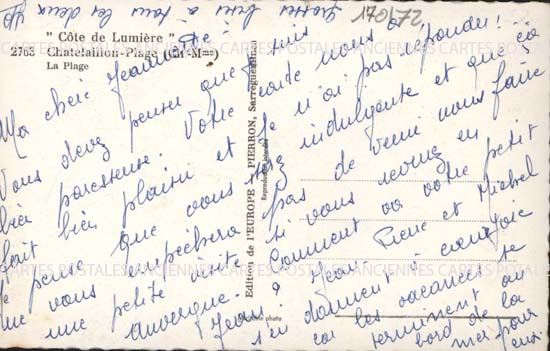 " Côte de Lumière "
2763 Chatelaillon-Plage (CH-Mme)
La Plage
272071
Ma chère Jeannette
Vous devez penser que je suis
bien paresseuse. Votre carte nous a
fait bien plaisir et je n'ai pas répondu!
Je pense que vous serez indulgente et que ça
ne vous empêchera pas de venir nous faire
une petite visite si vous revenez en
Auvergne.
Comment va votre petit
Jean? Jean Pierre et Michel
s'en donnent à coeur joie
car les vacances se
terminent au
bord de la
mer pour
eux.
à tous les deux
Edition de l'EUROPE PIERRON, Sarreguemines
Reproduction interdite
photo
CARTES POSTALES ANCIENNES CARTES POSTALES